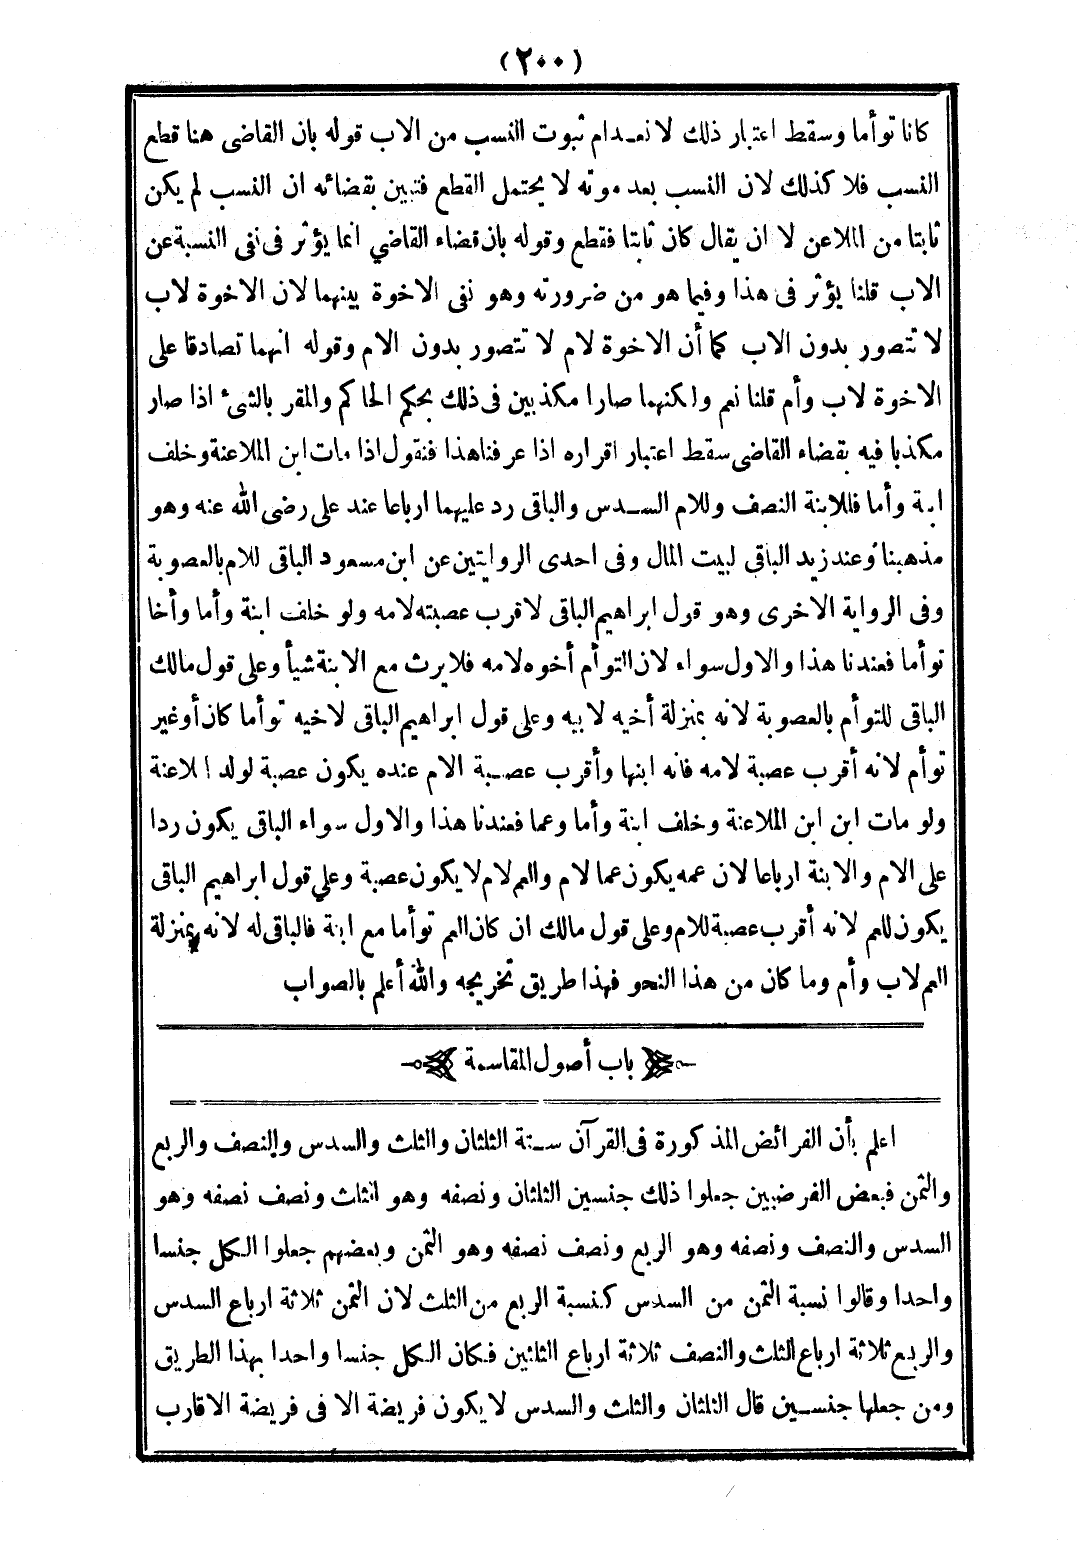 (٢٠٠)
كانا توأما وسقط اعتبار ذلك لانعدام ثبوت النسب من الاب قوله بان القاضى هنا قطع
النسب فلا كذلك لان النسب بعد موته لا يحتمل القطع فتبين بقضائه ان النسب لم يكن
ثابتا من الملاعن لا ان يقال كان ثابتا فقطع وقوله بان قضاء القاضي انما يؤثر فى نفى النسبة عن
الاب قلنا يؤثر فى هذا وفيما هو من ضرورته وهو نفى الاخوة بينهما لان الاخوة لاب
لا تتصور بدون الاب كما أن الاخوة لام لا تتصور بدون الام وقوله انهما تصادقا على
الاخوة لاب وأم قلنا نعم ولكنهما صارا مكذبين فى ذلك بحكم الحاكم والمقر بالشىء اذا صار
مكذبا فيه بقضاء القاضى سقط اعتبار اقراره اذا عرفنا هذا فنقول اذا مات ابن الملاعنة وخلف
ابنة وأما فللابنة النصف وللام السدس والباقى رد عليهما ارباعا عند على رضى الله عنه وهو
مذهبنا وعند زيد الباقى لبيت المال وفى احدى الروايتين عن ابن مسعود الباقى للام بالعصوبة
وفى الرواية الاخرى وهو قول ابراهيم الباقى لاقرب عصبته لامه ولو خلف ابنة وأما وأخا
توأما فعندنا هذا والاول سواء لان التوأم أخوه لامه فلا يرث مع الابنة شيأ وعلى قول مالك
الباقى للتوأم بالعصوبة لانه بمنزلة أخيه لابيه وعلى قول ابراهيم الباقى لاخيه توأما كان أو غير
توأم لانه أقرب عصبة لامه فانه ابنها وأقرب عصبة الام عنده يكون عصبة لولد الملاعنة
ولو مات ابن ابن الملاعنة وخلف ابنة وأما وعما فعندنا هذا والاول سواء الباقى يكون ردا
على الام والابنة ارباعا لان عمه يكون عما لام والعم لام لا يكون عصبة وعلي قول ابراهيم الباقى
يكون للعم لانه أقرب عصبة للام وعلى قول مالك ان كان العم توأما مع ابنة فالباقى له لانه بمنزلة
العم لاب وأم وما كان من هذا النحو فهذا طريق تخريجه والله أعلم بالصواب
باب أصول المقاسمة
اعلم بأن الفرائض المذكورة فى القرآن ستة الثلثان والثلث والسدس والنصف والربع
والثمن فبعض الفرضيين جعلوا ذلك جنسين الثلثان ونصفه وهو الثلث ونصف نصفه وهو
السدس والنصف ونصفه وهو الربع ونصف نصفه وهو الثمن وبعضهم جعلوا الكل جنسا
واحدا وقالوا نسبة الثمن من السدس كنسبة الربع من الثلث لان الثمن ثلاثة ارباع السدس
والربع ثلاثة ارباع الثلث والنصف ثلاثة ارباع الثلثين فكان الكل جنسا واحدا بهذا الطريق
ومن جعلها جنسين قال الثلثان والثلث والسدس لا يكون فريضة الا فى فريضة الاقارب